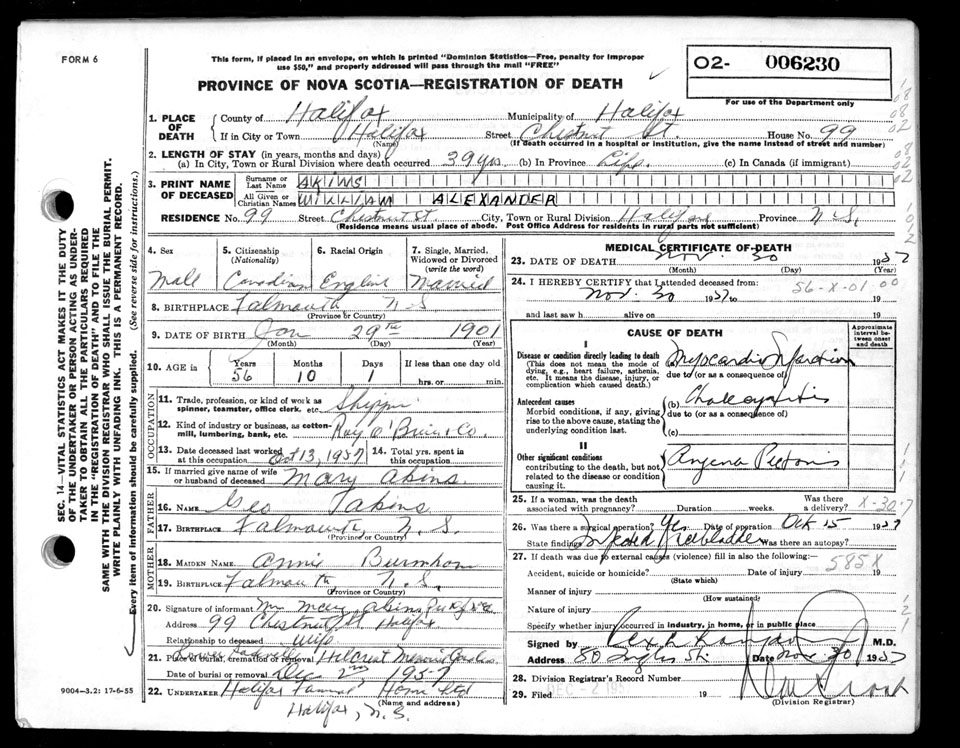 FORM 6
This form, if placed in an envelope, on which is printed "Dominion Statistics—Free, penalty for improper
use $50," and properly addressed will pass through the mail "FREE"
PROVINCE OF NOVA SCOTIA—REGISTRATION OF DEATH
02- 006230
For use of the Department only
1. PLACE OF DEATH
County of Halifax Municipality of Halifax
If in City or Town Halifax Street Chestnut St. House No. 99
(Name) (If death occurred in a hospital or institution, give the name instead of street and number)
2. LENGTH OF STAY (in years, months and days)
(a) In City, Town or Rural Division where death occurred 39 yrs (b) In Province Life. (c) In Canada (if immigrant)
3. PRINT NAME OF DECEASED
Surname or Last Name AKINS
All Given or Christian Names WILLIAM ALEXANDER
RESIDENCE No. 99 Street Chestnut St. City, Town or Rural Division Halifax Province N.S.
(Residence means usual place of abode. Post Office Address for residents in rural parts not sufficient)
4. Sex 5. Citizenship 6. Racial Origin 7. Single, Married,
(Nationality) Widowed or Divorced
(write the word)
Male Canadian English Married
8. BIRTHPLACE Falmouth N S
(Province or Country)
9. DATE OF BIRTH Jan 29th 1901
(Month) (Day) (Year)
10. AGE in Years Months Days If less than one day old
56 10 1 hrs. or min.
OCCUPATION
11. Trade, profession, or kind of work as
spinner, teamster, office clerk, etc. Shipper
12. Kind of industry or business, as cotton-
mill, lumbering, bank, etc. Roy O'Brien & Co.
13. Date deceased last worked 14. Total yrs. spent in
at this occupation Oct 13, 1957 this occupation
15. If married give name of wife
or husband of deceased Mary Akins
FATHER
16. NAME Geo Akins
17. BIRTHPLACE Falmouth, N. S.
(Province or Country)
MOTHER
18. MAIDEN NAME Annie Burnham
19. BIRTHPLACE Falmouth, N. S.
(Province or Country)
20. Signature of informant Mrs Mary Akins
Address 99 Chestnut St Halifax
Relationship to deceased Wife
21. Place of burial, cremation or removal Hillcrest
Date of burial or removal Dec 2nd 1957
22. UNDERTAKER Halifax Home Ltd
(Name and address)
Halifax, N. S.
MEDICAL CERTIFICATE OF DEATH
23. DATE OF DEATH Nov. 30 1957
(Month) (Day) (Year)
24. I HEREBY CERTIFY that I attended deceased from: 56-X-01 00
Nov. 30 1957 to 19
and last saw h alive on 19
CAUSE OF DEATH
Approximate interval between onset and death
I
Disease or condition directly leading to death
(This does not mean the mode of
dying, e.g., heart failure, asthenia,
etc. It means the disease, injury, or
complication which caused death.)
Myocardial Infarction
due to (or as a consequence of)
Antecedent causes
Morbid conditions, if any, giving
rise to the above cause, stating the
underlying condition last.
(b)
due to (or as a consequence of)
(c)
II
Other significant conditions
contributing to the death, but not
related to the disease or condition
causing it.
Angina Pectoris
25. If a woman, was the death Was there
associated with pregnancy? Duration weeks. a delivery? X-30-7
26. Was there a surgical operation? Yes Date of operation Oct 15 1957
State findings Was there an autopsy?
27. If death was due to external causes (violence) fill in also the following:
585X
Accident, suicide or homicide? Date of injury 19
(State which)
Manner of injury
(How sustained)
Nature of injury
Specify whether injury occurred in industry, in home, or in public place
Signed by M.D.
Address Date Nov 30 1957
28. Division Registrar's Record Number
29. Filed DEC - 2 195 19
(Division Registrar)
9004—3.2: 17-6-55
SEC. 14—VITAL STATISTICS ACT MAKES IT THE DUTY
OF THE UNDERTAKER OR PERSON ACTING AS UNDER-
TAKER TO OBTAIN ALL THE PARTICULARS REQUIRED
IN THE "REGISTRATION OF DEATH" AND TO FILE THE
SAME WITH THE DIVISION REGISTRAR WHO SHALL ISSUE THE BURIAL PERMIT.
WRITE PLAINLY WITH UNFADING INK. THIS IS A PERMANENT RECORD.
Every item of information should be carefully supplied. (See reverse side for instructions.)